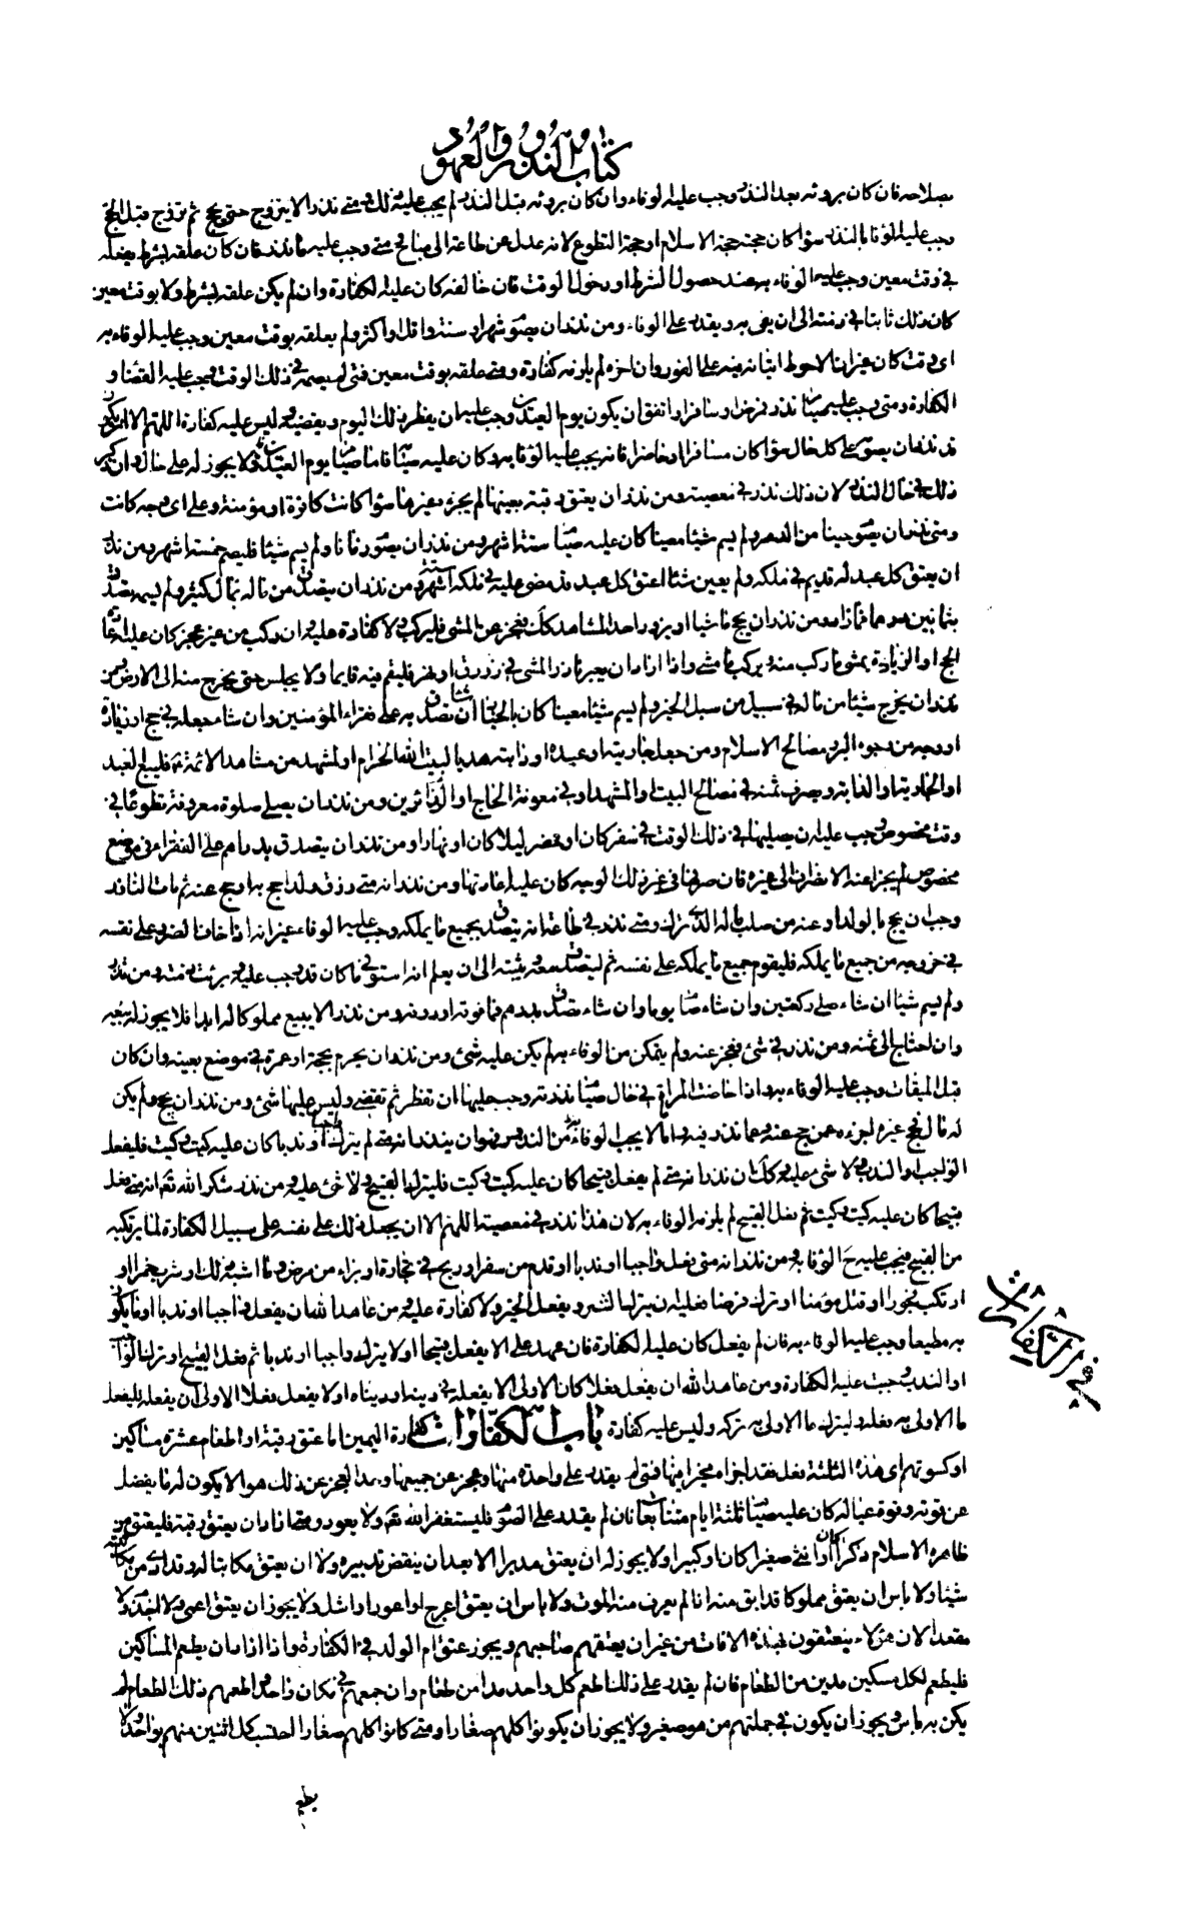 كتاب النذور والعهود
بصلاحه فان كان بروءه بعد النذر وجب عليه الوفاء وان كان بروءه قبل النذر لم يجب عليه ذلك ومتى نذر الا يتزوج حتى يحج ثم تزوج قبل الحج
وجب عليه الوفا بالنذر سوا كان حجته حجة الاسلام او حجة التطوع لانه عدل عن طاعة الى مباح متى وجب عليه ما نذر فان كان علقه بشرط يفعله
في وقت معين وجب عليه الوفاء به عند حصول الشرط او دخول الوقت فان خالفه كان عليه الكفارة وان لم يكن علقه بشرط ولا بوقت معين
كان ذلك ثابتا في ذمته الى ان يفى به ويقدر على الوفاء ومن نذر ان يصوم شهرا او سنة او اقل او اكثر ولم يعلقه بوقت معين وجب عليه الوفاء به
اى وقت كان غير ان الاحوط اتيانه به على الفور وان اخره لم يلزمه كفارة ومتى علقه بوقت معين فمتى لم يصمه في ذلك الوقت وجب عليه القضاء و
الكفارة ومتى وجب عليه صيام نذر فمرض او سافر او اتفق ان يكون يوم العيدين وجب عليه ان يفطر ذلك اليوم ويقضيه وليس عليه كفارة اللهم الا ان يكون
قد نذر ان يصوم على كل حال سوا كان مسافرا او حاضرا فانه يجب عليه الوفا به وكان عليه صيامه فاما صيام يوم العيدين فلا يجوز له على حال وان ذكر
ذلك في حال النذر لان ذلك نذر في معصية ومن نذر ان يعتق رقبة بعينها لم يجزه غيرها سوا كانت كافرة او مؤمنة وعلى اى وجه كانت
ومتى نذر ان يصوم حينا من الدهر ولم يسم شيئا معينا كان عليه صيام ستة اشهر ومن نذر ان يصوم زمانا ولم يسم شيئا فليصم خمسة اشهر ومن نذر
ان يعتق كل عبد له قديم في ملكه ولم يعين شيئا اعتق كل عبد قد مضى عليه في ملكه ستة اشهر ومن نذر ان يتصدق من ماله بمال كثير ولم يسمه تصدق
بثمانين درهما فما زاد ومن نذر ان يحج ماشيا او يزور احد المشاهد كذلك فعجز عن المشى فليركب ولا كفارة عليه وان ركب من غير عجز كان عليه اعادة
الحج او الزيادة يمشى ما ركب منه ويركب ما مشى واذا اراد ان يعبر ناذر المشى في زورق او نهر فليقم فيه قايما ولا يجلس حتى يخرج منه الى الارض ومن
نذر ان يخرج شيئا من ماله في سبيل من سبل الخير ولم يسم شيئا معينا كان بالخيار ان شاء تصدق به على فقراء المؤمنين وان شاء جعله في حج او زيارة
او وجه من وجوه البر ومصالح الاسلام ومن جعل جاريته او عبده او دابته هديا لبيت الله الحرام او لمشهد من مشاهد الائمة فليبع العبد
او الجارية او الدابة وصرف ثمنه في مصالح البيت او المشهد او في معونة الحاج او الزائرين ومن نذر ان يصلى صلوة معروفة تطوعا في
وقت مخصوص وجب عليه ان يصليها في ذلك الوقت في سفر كان او حضر ليلا كان او نهارا ومن نذر ان يتصدق بدراهم على الفقراء في موضع
مخصوص لم يجز عنه الانصراف الى غيره فان صرفها في غير ذلك الوجه كان عليه اعادتها ومن نذر انه متى رزق ولدا حج به او حج عنه ثم مات الناذر
وجب ان يحج بالولد او عنه من صلب ماله الذى تركه ومتى نذر في طاعة انه يتصدق بجميع ما يملكه وجب عليه الوفاء غير انه اذا خاف الضرر على نفسه
في خروجه من جميع ما يملكه فليقوم جميع ما يملكه على نفسه ثم ليتصدق معه ويثبته الى ان يعلم انه استوفى ما كان قد وجب عليه وبرئت ذمته ومن نذر
ولم يسم شيئا ان شاء صلى ركعتين وان شاء صام يوما وان شاء تصدق بدرهم فما فوقه او دونه ومن نذر الا يبيع مملوكا له ابدا فلا يجوز له بيعه
وان احتاج الى ثمنه ومن نذر في شئ فعجز عنه ولم يتمكن من الوفاء به لم يكن عليه شئ ومن نذر ان يحرم بحجة او عمرة في موضع بعينه وان كان
قبل الميقات وجب عليه الوفاء به واذا حاضت المراة في حال صيام نذرته وجب عليها ان تفطر ثم تقضى وليس عليها شئ ومن نذر ان يحج ولم يكن
له مال فحج عن غيره اجزءه عن حج عنه وعما نذر فيه واما لا يجب الوفاء به من النذر فهو ان ينذر انه متى لم يترك واجبا او ندبا كان عليه كيت وكيت فليفعل
الواجب او الندب ولا شئ عليه وكذلك ان نذر انه متى لم يفعل قبيحا كان عليه كيت وكيت فليترك القبيح ولا شئ عليه ومن نذر شكر الله تعالى انه متى فعل
قبيحا كان عليه كيت وكيت ثم فعل القبيح لم يلزمه الوفاء به لان هذا نذر في معصية اللهم الا ان يجعل ذلك على نفسه على سبيل الكفارة لما يرتكبه
من القبيح فيجب عليه ح الوفا به ومن نذر انه متى فعل واجبا او ندبا او قدم من سفر او ربح في تجارة او براء من مرض وما اشبه ذلك او شرب خمرا او
ارتكب فجورا او قتل مؤمنا او ترك فرضا فعليه ان يترك الشر ويفعل الخير ولا كفارة عليه ومن عاهد الله ان يفعل واجبا او ندبا او ما يكون
به مطيعا وجب عليه الوفاء به فان لم يفعل كان عليه الكفارة فان عهد على الا يفعل قبيحا او لا يترك واجبا او ندبا ثم فعل القبيح او ترك الواجب
او الندب وجبت عليه الكفارة ومن عاهد الله ان يفعل فعلا كان الاولى الا يفعله في دينه او دنياه او لا يفعل فعلا الاولى ان يفعله فليفعل
ما الاولى به فعله وليترك ما الاولى به تركه وليس عليه كفارة باب الكفارات كفارة اليمين اما عتق رقبة او اطعام عشرة مساكين
او كسوتهم اى هذه الثلثة فعل فقد اجزاه مخير ايها فمتى لم يقدر على واحدة منها وعجز عن جميعها وحد العجز عن ذلك هو الا يكون له ما يفضل
عن قوته وقوت عياله كان عليه صيام ثلثة ايام متتابعات فان لم يقدر على الصوم فليستغفر الله تعالى ولا يعود ومتى اراد ان يعتق رقبة فليعتق من
ظاهره الاسلام ذكرا كان او انثى صغيرا كان او كبيرا ولا يجوز له ان يعتق مدبرا الا بعد ان ينقض تدبيره ولا ان يعتق مكاتبا له وقد ادى من مكاتبته
شيئا ولا باس ان يعتق مملوكا قد ابق منه اذا لم يعرف منه الموت ولا باس ان يعتق اعرج او اعور او اشل ولا يجوز ان يعتق اعمى ولا اجذم ولا
مقعدا لان هؤلاء ينعتقون بهذه الافات من غير ان يعتقهم صاحبهم ويجوز عتق ام الولد في الكفارة واذا اراد ان يطعم المساكين
فليطعم لكل مسكين مدين من الطعام فان لم يقدر على ذلك اطعم كل واحد مدا من طعام وان جمعهم في مكان واحد واطعمهم ذلك الطعام لم
يكن به باس ويجوز ان يكون في جملتهم من هو صغير ولا يجوز ان يكونوا كلهم صغارا ومتى كانوا كلهم صغارا احتسب كل اثنين منهم بواحد ولا
في الكفارات
يطعم